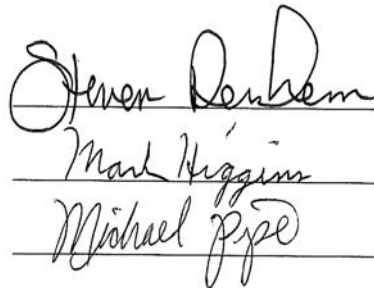 Steven Denham
Mark Higgins
Michael Pope